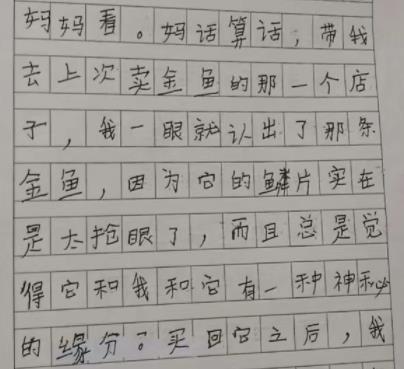 妈妈看。妈话算话，带我
去上次卖金鱼的那一个店
子，我一眼就认出了那条
金鱼，因为它的鳞片实在
是太抢眼了，而且总是觉
得它和我和它有一种神秘
的缘分。买回它之后，我